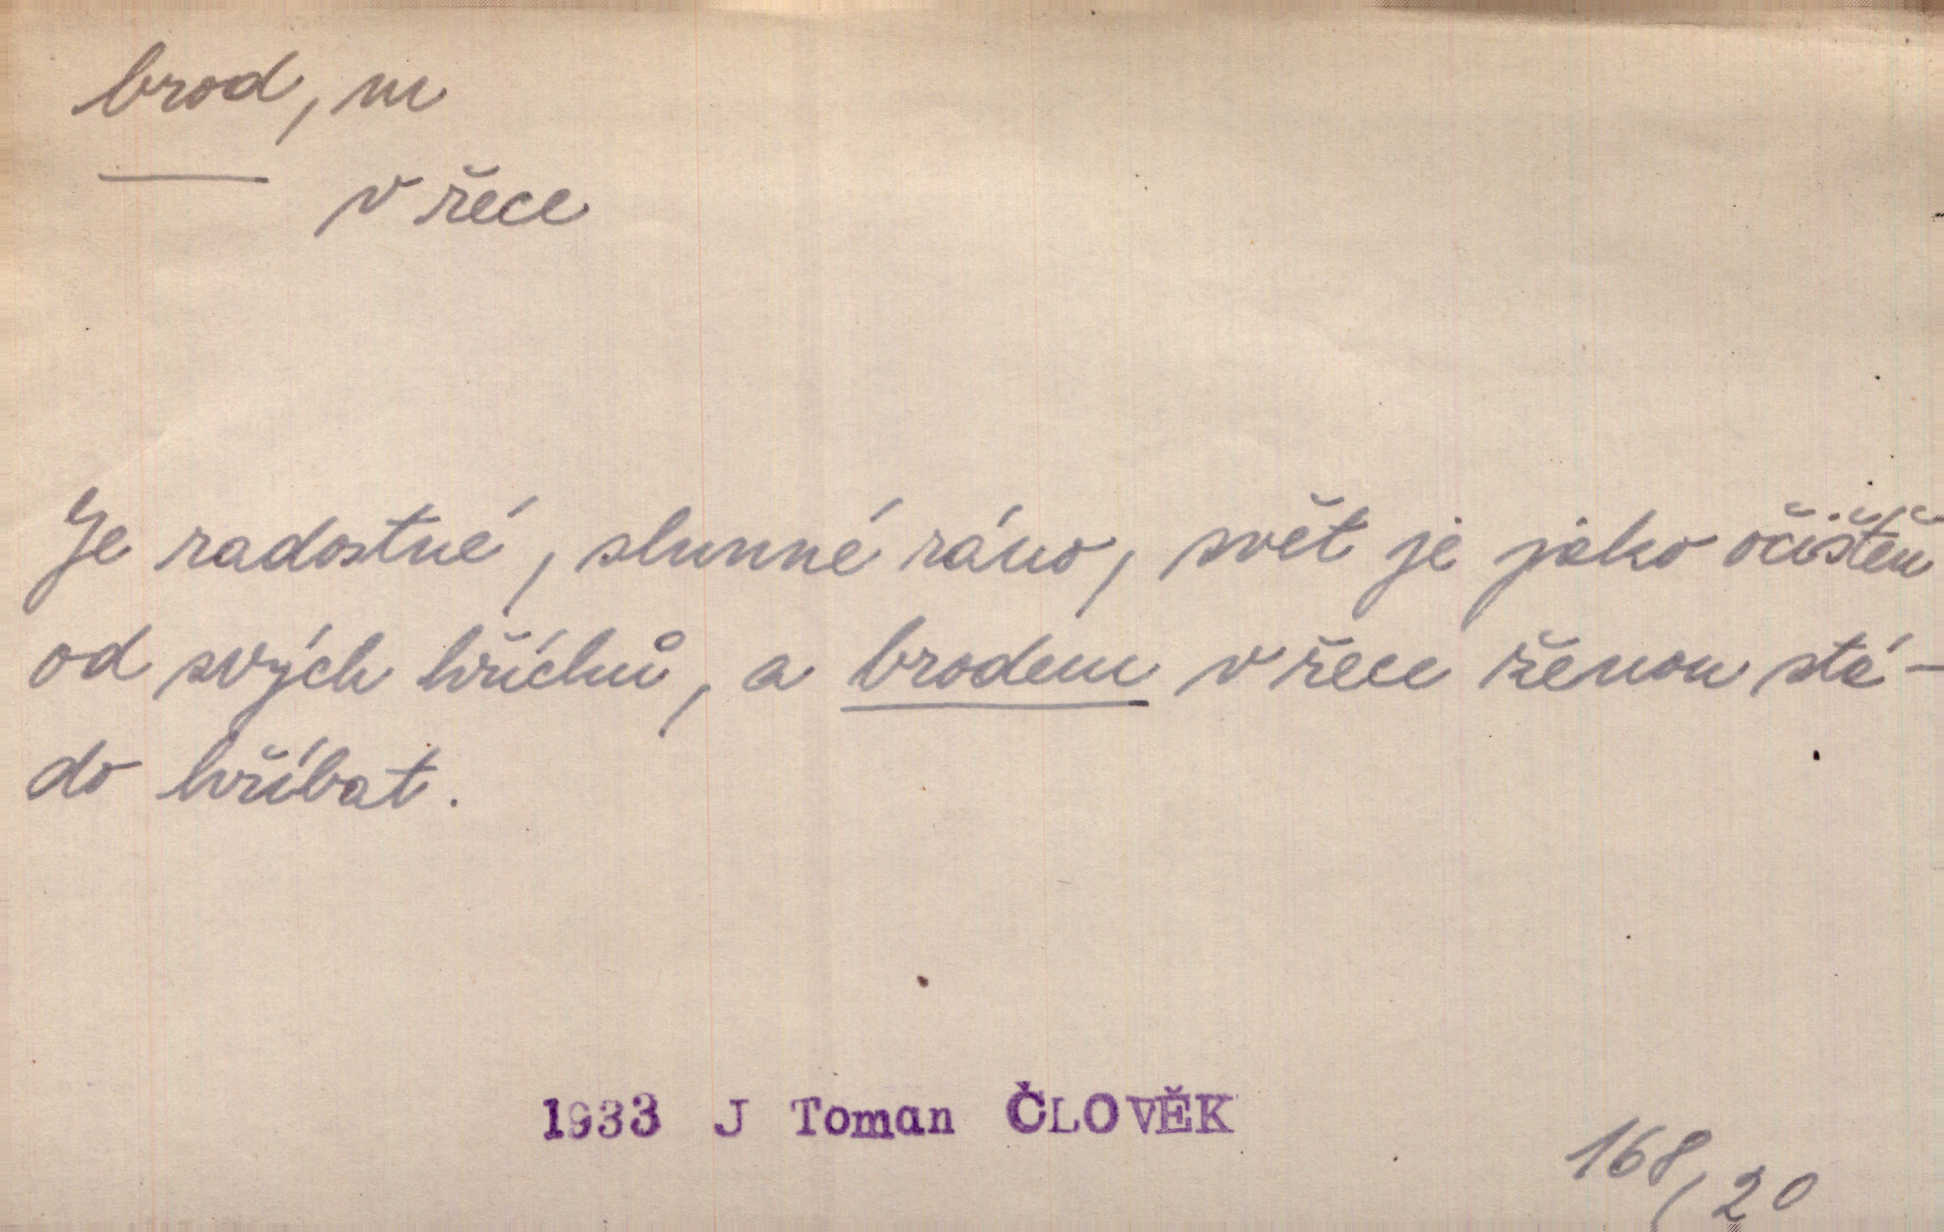 brod, m
v řece
Je radostné, slunné ráno, svět je jako očištěn
od svých hříchů, a brodem v řece ženou stá-
do hříbat.
1933 J Toman ČLOVĚK
168/20